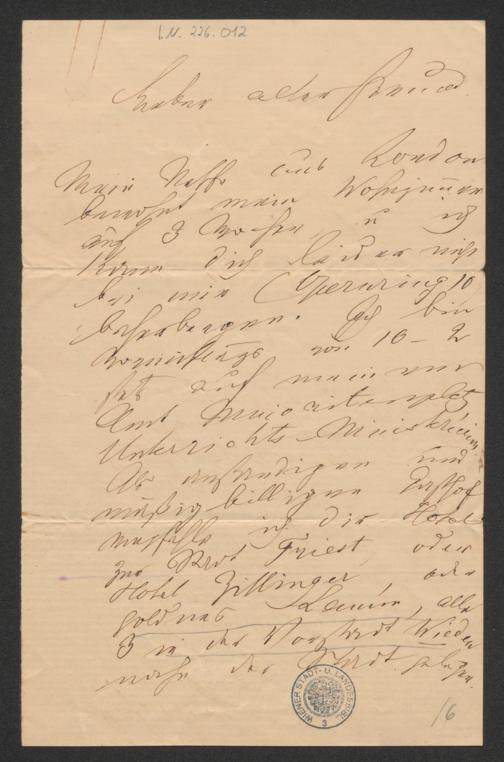 I.N. 226.012
Lieber alter Freund.
Mein Neffe aus London
bewohnt mein Wohnzimmer
auf 3 Wochen, u ich
kann dich leider nicht
bei mir (Opernring 10
beherbergen. Ich bin
vormittags von 10 – 2
stets auf meinem
Amt Minoritenplatz
Unterrichts-Ministerium
Als anständigen und
mäßig billigen Gasthof
empfehle ich dir Hotel
zur Stadt Triest, oder
Hotel Zillinger, oder
goldnes Lamm, alle
3 in der Vorstadt Wieden
nahe der Stadt gelegen.
WIENER STADT- U. LANDESBIBL.
3
16